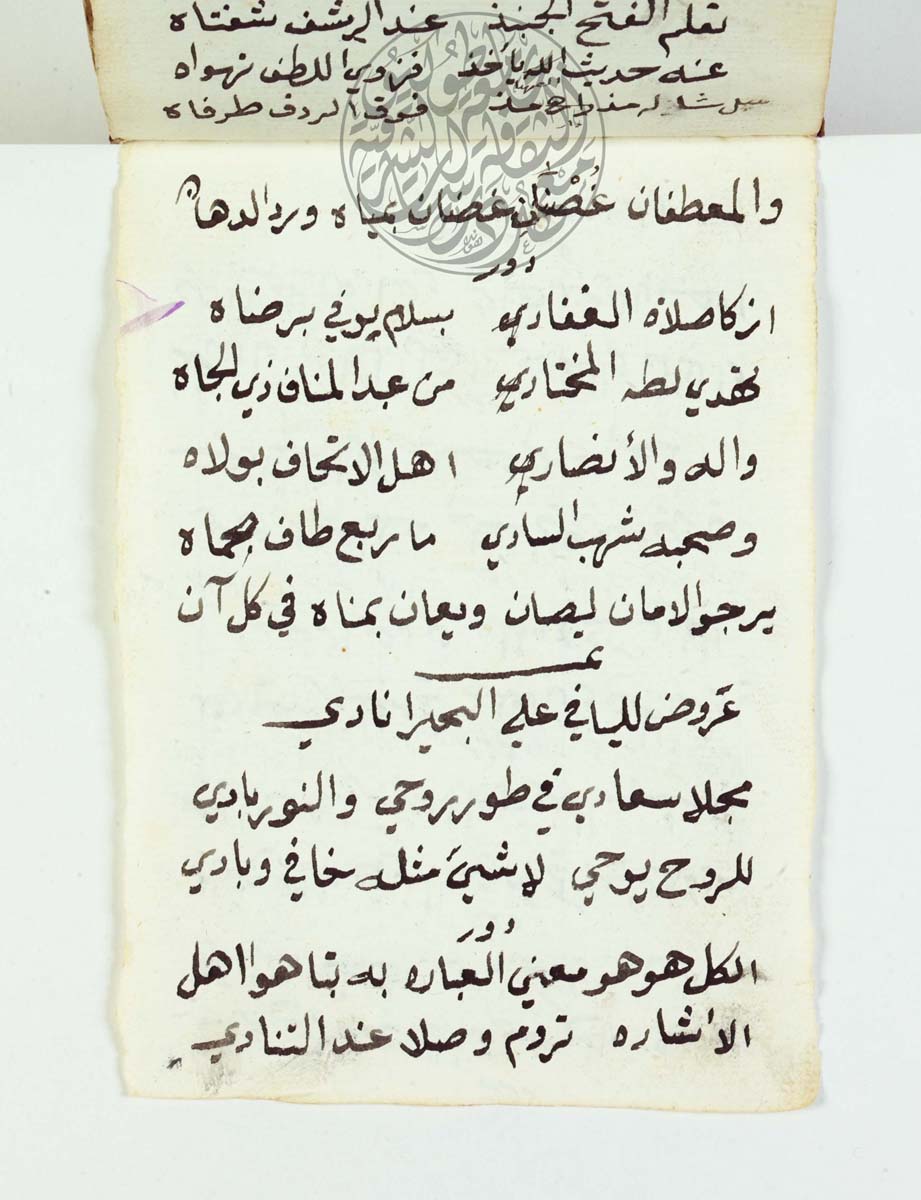 تعلم الفتح الجنبذ عند الرشف شفتاه
عنه احديث الله ياخذ فنروي اللطف نهواه
سل شا له مذ واح مذ فوق الردف طرفاه
والمعطفان غُصْنَان غضنان بمياه وردالدهان
دور
ازكا صلاة الغفاري بسلام يوفي برضاه
تهدي لطه المختاري من عبد المناف ذي الجاه
واله والأنصاري اهل الاتحاف بولاه
وصحبه شهب الساري ما ربع طاف بحماه
يرجوالامان ليصان ويعان بمناه في كل آن
عروض لليافي علي البحيرا نادي
مجلا سعادي في طور روحي والنور بادي
للروح يوحي لا شيئ مثله خافي وبادي
دور
الكل هو هو معني العباره به بتاهوا اهل
الاشاره تروم وصلا عند التنادي